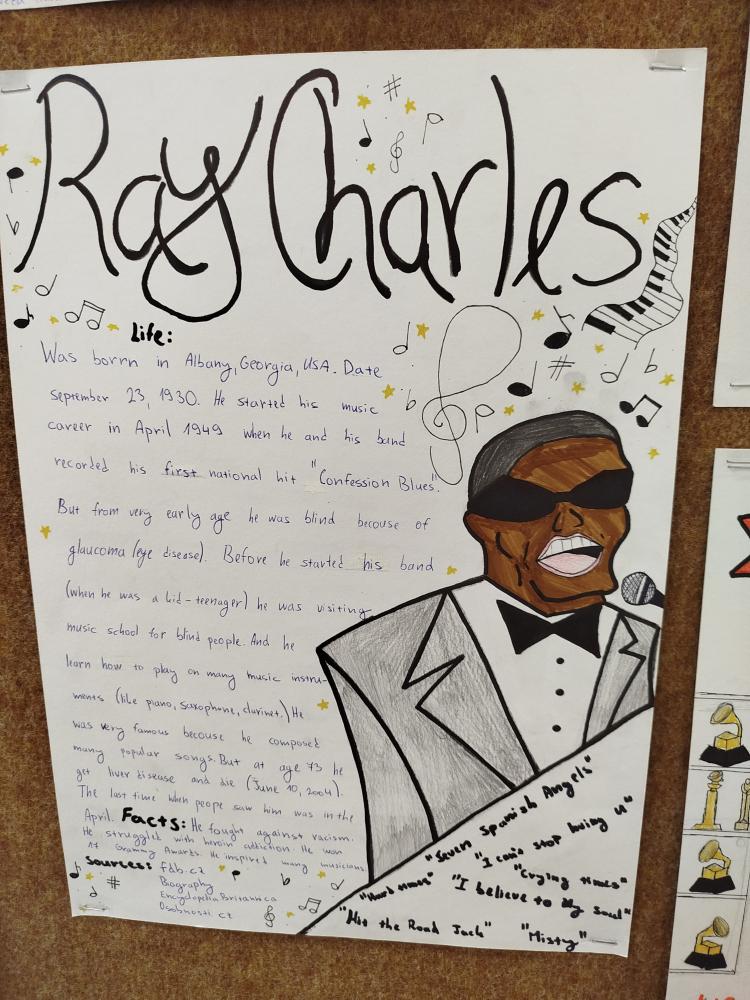 Ray Charles
Life:
Was bornn in Albany, Georgia, USA. Date
september 23, 1930. He started his music
career in April 1949 when he and his band
recorded his first national hit "Confession Blues".
But from very early age he was blind becouse of
glaucoma (eye disease). Before he started his band
(when he was a kid-teenager) he was visiting
music school for blind people. And he
learn how to play on many music instru-
ments (like piano, saxophone, clarinet.) He
was very famous becouse he composed
many popular songs. But at age 73 he
get liver disease and die (June 10, 2004).
The last time when peope saw him was in the
April. Facts: He fought against racism.
He struggled with heroin addiction. He won
17 Grammy Awards. He inspired many musicians
Sources: fdb.cz
Biography
Encyclopedia Britannica
Osobnosti cz
"Seven Spanish Angels"
"I can't stop loving u"
"Crying times"
"Hard times"
"I believe to My Soul"
"Hit the Road Jack"
"Misty"